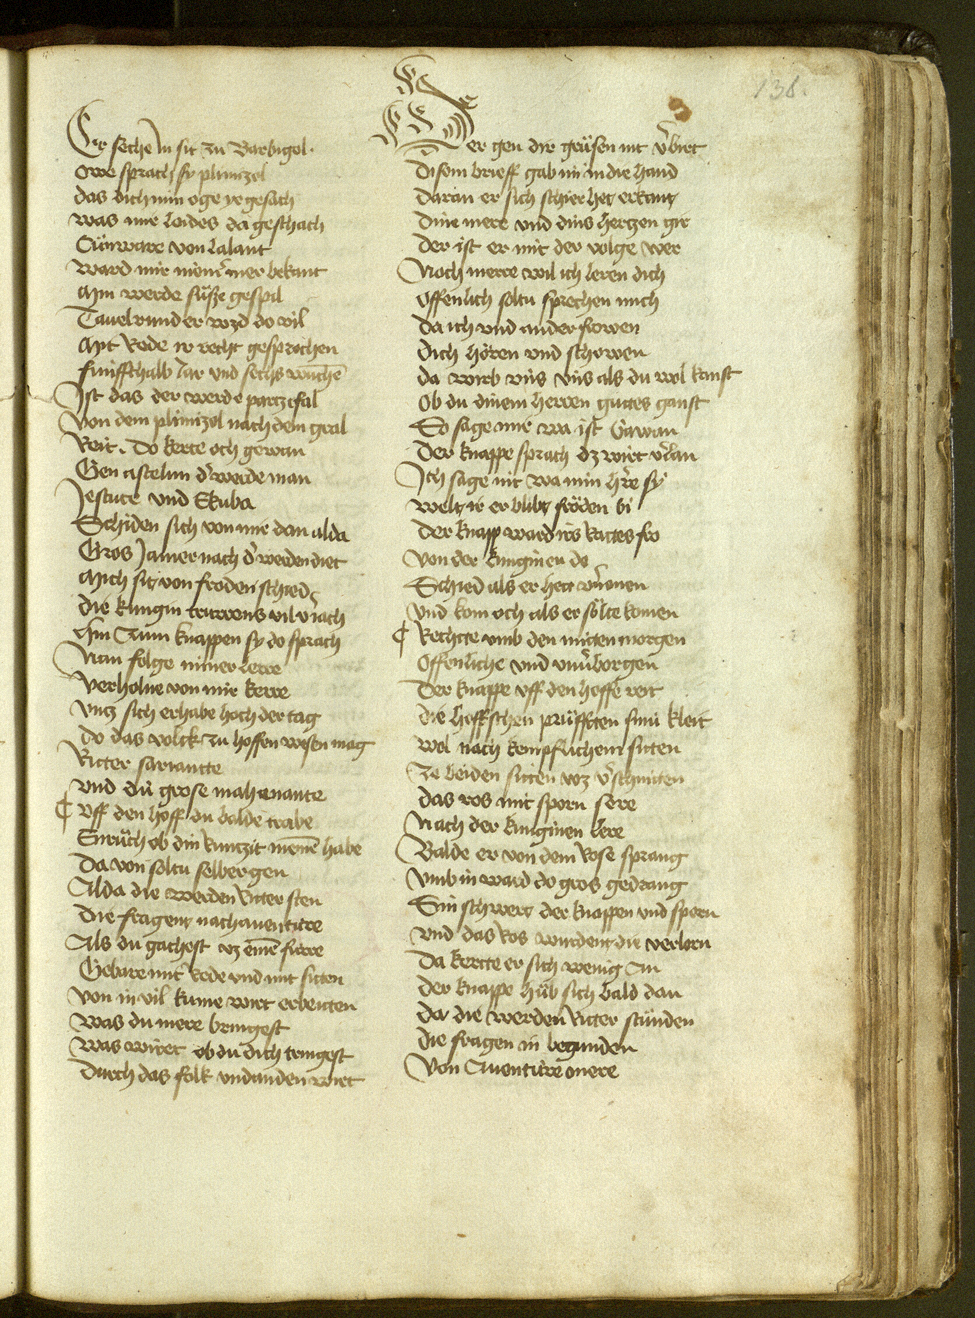 138.
Er sehe In sit zu Barbigol.
Owe sprach sy plimizol
das dich min oge ye gesach
was mir leides da geschach
Cunware von lalant
ward mir niem̄ mer bekant
Min werde süsze gespil
Tauelrunder wzd do vil
Mit Rede ir recht gesprochen
funffthalb Jar vnd sechs wuchē
Ist das der werde partzifal
Von dem plimizol nach dem gral
Reit. Do kerte och gewan
Gen astelun d' werde man
Jestute vnd Ekuba
Schiden sich von mir dan alda
Gros Jamer nach d' werden diet
Mich sit von froden schied
die kungin trurrens vil v'iach
Hin Zum knappen sy do sprach
Nun folge miner lerre
verholne von mir kerre
vntz sich erhabe hoch der tag
do das volck zu hoffen wesen mag
Ritter sariantte
vnd dü grose mahinante
¶ vff den hoff du balde trabe
Enrüch ob din Runtzit iemē habe
Da von soltu selber gen
Alda die werden Ritter sten
die fragent nach auentitre
Als du gachest vz einē furre
Gebare mit Rede vnd mit sitten
von in vil kume wirt erbeitten
was du mere bringest
was wirret ob du dich tringest
durch das folk vnd an den wirt
Der gen dir grüsen nit v'birt
disem brieff gab im in die hand
daran er sich schier het erkant
dine mere vnd dins hertzen gir
der ist er mit der volge wer
Noch merre wil ich leren dich
offenlich soltu sprechen mich
da ich vnd ander frowen
dich hören vnd schowen
da wirb vns vns als du wol kanst
ob du dinem herren guttes ganst
So sage mir wa ist Gawan
der knappe sprach dz wirt v'lan
Ich sage nit wa min h're sy
welt ir er blibt fröden bi
der knapp ward irs Rattes fro
von der kuniginen do
Schied als er hett v'nomen
vnd kom och als er sölte komen
¶ Rechtte vmb den mitten morgen
offenliche vnd vnu'borgen
der knappe vff den hoffe reit
die hoffschen prüfften sinü kleit
wol nach kempflichem sitten
Ze beiden sitten wz v'schnitten
das ros mit sporn sere
Nach der kunginen lere
Balde er von dem Rose sprang
vmb in ward do gros gedrang
Sin schwert der knappen vnd sporn
vnd das Ros wurdent die verlorn
Da kertte er sich wenig an
der knappe hüb sich bald dan
da die werden Ritter stünden
die fragen in begunden
Von Auentitre mere